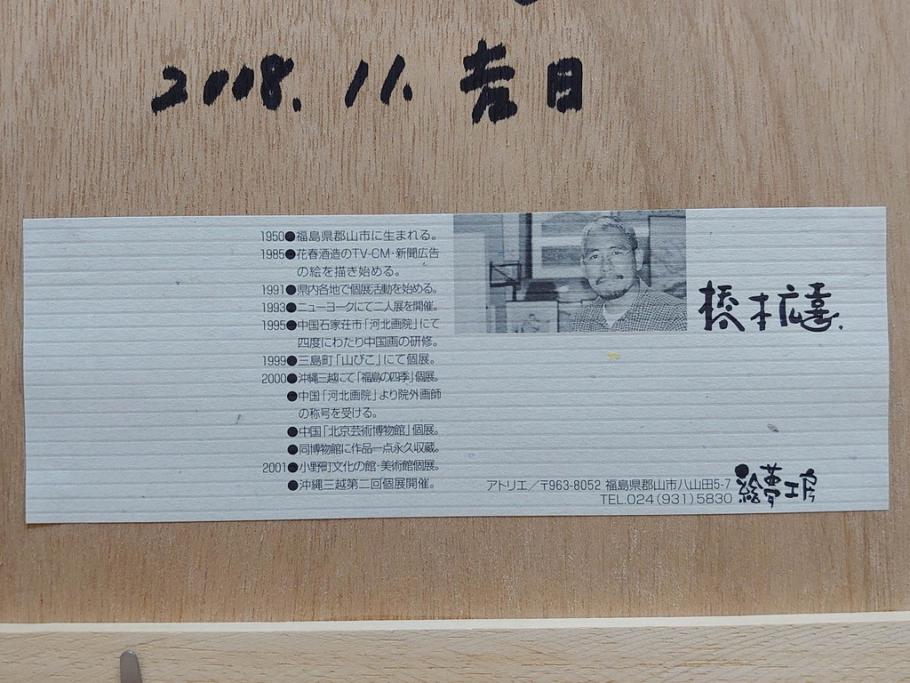 2008. 11. 吉日
1950●福島県郡山市に生まれる。
1985●花春酒造のTV-CM・新聞広告
の絵を描き始める。
1991●県内各地で個展活動を始める。
1993●ニューヨークにて二人展を開催。
1995●中国石家荘市「河北画院」にて
四度にわたり中国画の研修。
1999●三島町「山びこ」にて個展。
2000●沖縄三越にて「福島の四季」個展。
●中国「河北画院」より院外画師
の称号を受ける。
●中国「北京芸術博物館」個展。
●同博物館に作品一点永久収蔵。
2001●小野町文化の館・美術館個展。
●沖縄三越第二回個展開催。
橋本広喜.
アトリエ/〒963-8052 福島県郡山市八山田5-7
TEL.024(931)5830
絵夢工房